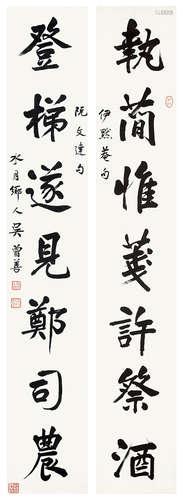 執萠惟羑許祭酒
伊默菴句
登梯遂見鄭司農
阮文達句
水月鄉人吳曾善